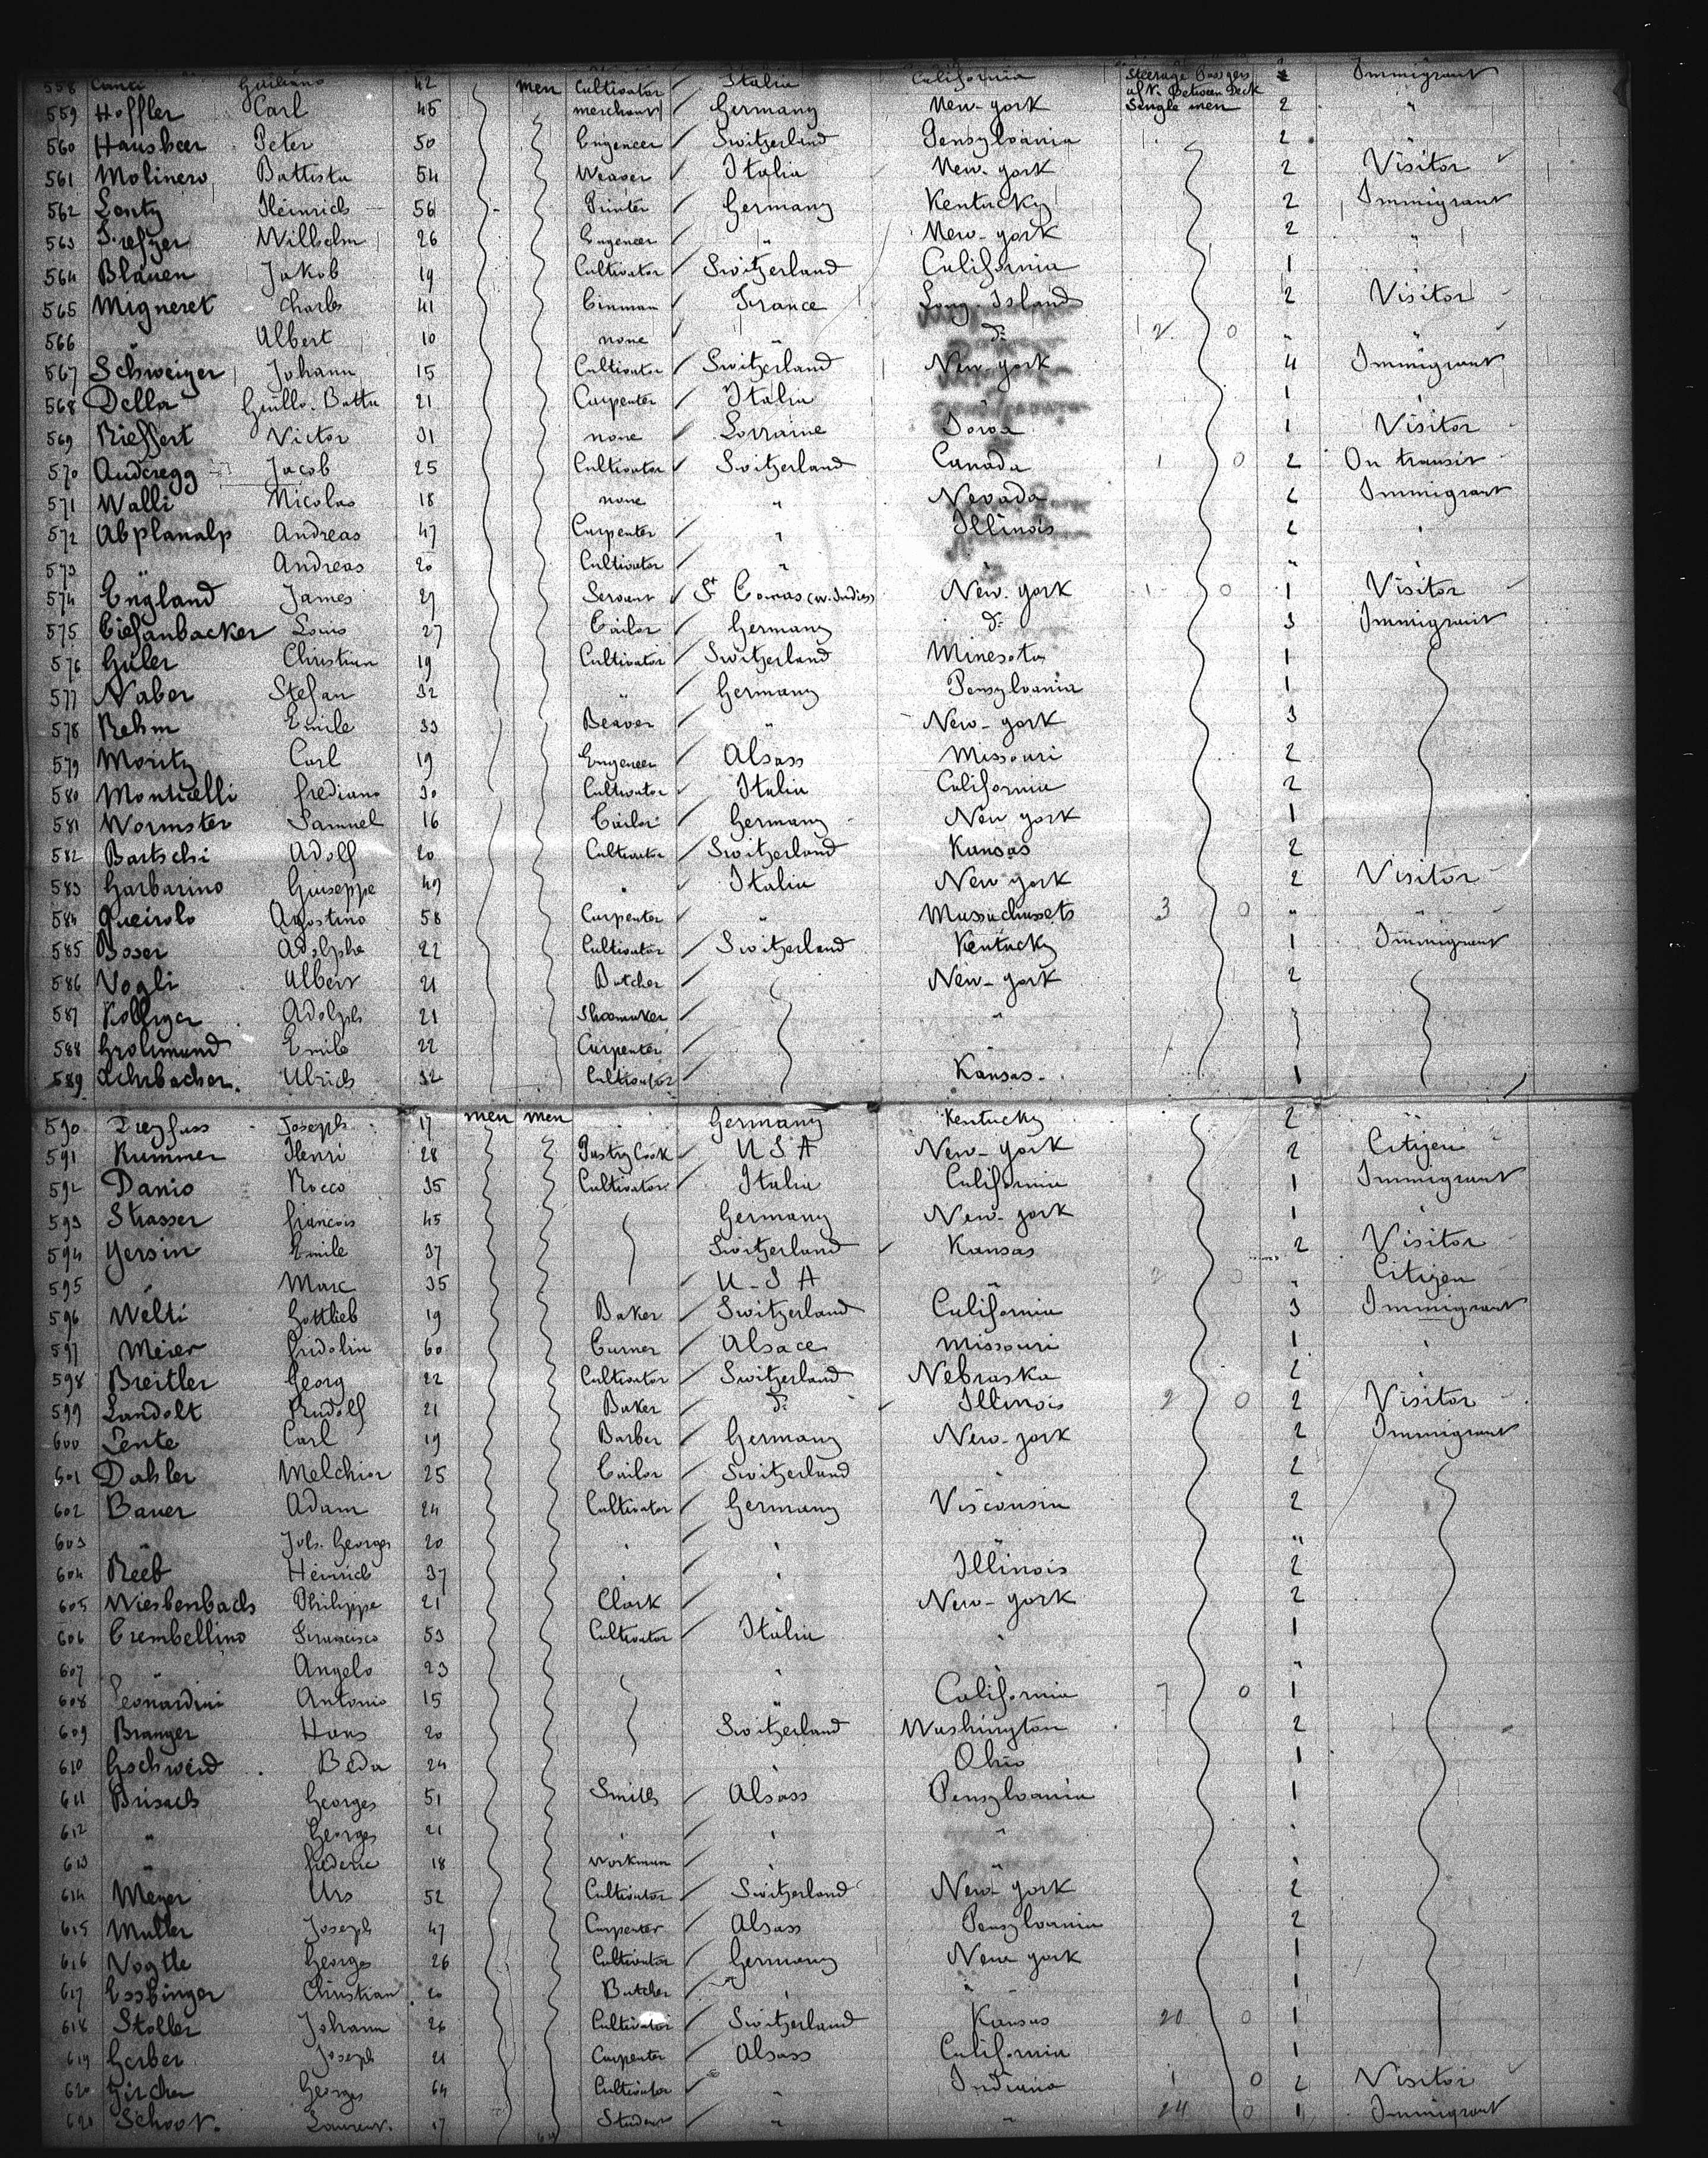 558 42 men Cultivator Italia California Steerage 2 Immigrant
559 Hoffler Carl 45 merchant Germany New-york Between Deck Single men 2 "
560 Hausheer Peter 50 Engeneer Switzerland Pensylvania 2
561 Molinero Battista 54 Weaver Italia New-york 2 Visitor
562 Heinrich 56 Printer Germany Kentucky 2 Immigrant
563 Wilhelm 26 Engeneer " New-york 2 "
564 Blauen Jakob 19 Cultivator Switzerland California 1
565 Migneret Charles 41 France Long-Island 2 Visitor
566 " Albert 10 none " do 2 0 " "
567 Schweizer Johann 15 Cultivator Switzerland New-york 4 Immigrant
568 Della 21 Carpenter Italia " 1 "
569 Rieffert Victor 31 none Lorraine 1 Visitor
570 Anderegg Jacob 25 Cultivator Switzerland Canada 1 0 2 On transit
571 Walli Nicolas 18 none " Nevada 2 Immigrant
572 Abplanalp Andreas 47 Carpenter " Illinois 2 "
573 " Andreas 20 Cultivator " " "
574 England James 27 Servant St Tomas (w. Indies) New-york 1 0 1 Visitor
575 Tiefanbacker Louis 27 Tailor Germany do 3 Immigrant
576 Guler Christian 19 Cultivator Switzerland Minesota 1
577 Naber Stefan 32 " Germany Pensylvania 1
578 Rehm Emile 33 Beaver " New-york 3
579 Moritz Carl 19 Engeneer Alsass Missouri 2
580 Monticelli frediano 30 Cultivator Italia California 2
581 Wormster Samuel 16 Tailor Germany New york 1
582 Bartschi Adolf 20 Cultivator Switzerland Kansas 2
583 Garbarino Giuseppe 49 " Italia New york 2 Visitor
584 Queirolo Agostino 58 Carpenter " Massachussets 3 0 " "
585 Boser Adolphe 22 Cultivator Switzerland Kentucky 1 Immigrant
586 Vogli Albert 21 Butcher New-york 2
587 Kolliger Adolph 21 Shoemaker "
588 Grolimund Emile 22 Carpenter
589 Ulrich 32 Cultivator Kansas 1
590 Dreyfuss Joseph 17 men men " Germany Kentucky 2
591 Kummer Henri 28 Pastry Cook U S A New-york 2 Citizen
592 Danio Rocco 35 Cultivator Italia California 1 Immigrant
593 Strasser francois 45 Germany New-york 1 "
594 Yersin Emile 37 Switzerland Kansas 2 Visitor
595 " Marc 35 U-S A " 2 0 " Citizen
596 Welti Gottlieb 19 Baker Switzerland California 3 Immigrant
597 Meier fridolin 60 Turner Alsace Missouri 1 "
598 Breitler Georg 22 Cultivator Switzerland Nebraska 2 "
599 Landolt Rudolf 21 Baker do Illinois 2 0 2 Visitor
600 Lente Carl 19 Barber Germany New-york 2 Immigrant
601 Dahler Melchior 25 Tailor Switzerland " 2
602 Bauer Adam 24 Cultivator Germany Visconsin 2
603 " Joh. Georges 20 " " "
604 Reeb Heinrich 37 " " Illinois 2
605 Wiesbenbach Philippe 21 Clark " New-york 2
606 Trembellino Francisco 53 Cultivator Italia " 1
607 " Angelo 23 " "
608 Leonardini Antonio 15 " California 7 0 1
609 Branger Hans 20 Switzerland Washington 2
610 Gschweid Beda 24 " Ohio 1
611 Brisach Georges 51 Smith Alsass Pensylvania 1
612 " Georges 21 " " " "
613 " frederic 18 Workman " " "
614 Meyer Urs 52 Cultivator Switzerland New york 2
615 Muller Joseph 47 Carpenter Alsass Pensylvania 2
616 Vogtle Georges 26 Cultivator Germany New york 1
617 Essbinger Christian 20 Butcher " " 1
618 Stoller Johann 26 Cultivator Switzerland Kansas 20 0 1
619 Gerber Joseph 21 Carpenter Alsass California 1
620 Georges 64 Cultivator " Indiana 1 0 2 Visitor
621 Laurent 17 Student " " 24 0 1 Immigrant